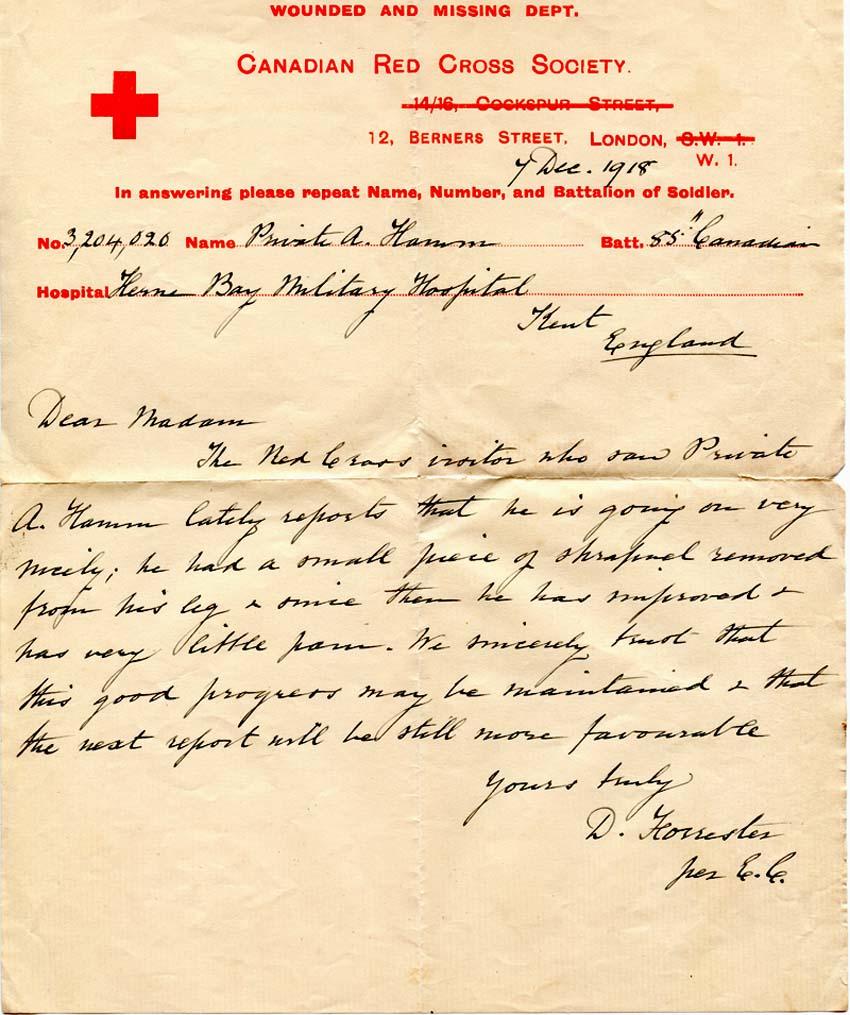 WOUNDED AND MISSING DEPT.
CANADIAN RED CROSS SOCIETY.
14/16, COCKSPUR STREET,
12, BERNERS STREET, LONDON, S.W. 1.
W. 1.
7 Dec. 1918
In answering please repeat Name, Number, and Battalion of Soldier.
No. 3,204,020 Name Private A. Hamm Batt. 85th Canadian
Hospital Herne Bay Military Hospital
Kent
England
Dear Madam
The Red Cross visitor who saw Private
A. Hamm lately reports that he is going on very
nicely; he had a small piece of shrapnel removed
from his leg & since then he has improved &
has very little pain. We sincerely trust that
this good progress may be maintained & that
the next report will be still more favourable
Yours truly
D. Forrester
per E.C.